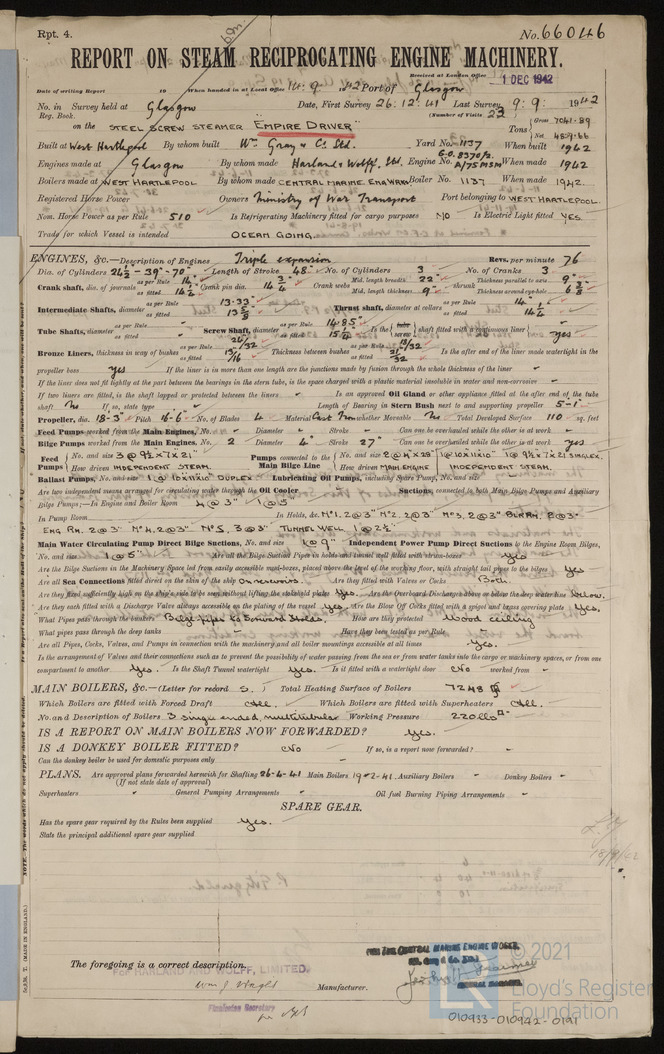 Rpt. 4. No. 66046
REPORT ON STEAM RECIPROCATING ENGINE MACHINERY.
Received at London Office 1 DEC 1942
Date of writing Report 19 When handed in at Local Office 14.9.42 Port of Glasgow
No. in Survey held at Glasgow Date, First Survey 26.12.41 Last Survey 9.9.1942
Reg. Book. (Number of Visits 23)
on the STEEL SCREW STEAMER "EMPIRE DRIVER" Tons Gross 7041.89 Net 4879.66
Built at West Hartlepool By whom built Wm Gray & Co. Ltd. Yard No. 1137 When built 1942
Engines made at Glasgow By whom made Harland & Wolff, Ltd. Engine No. G.O. 8370/2 A/75MSM When made 1942
Boilers made at WEST HARTLEPOOL By whom made CENTRAL MARINE ENG. WKS. Boiler No. 1137 When made 1942.
Registered Horse Power Owners Ministry of War Transport Port belonging to WEST HARTLEPOOL.
Nom. Horse Power as per Rule 510 Is Refrigerating Machinery fitted for cargo purposes NO Is Electric Light fitted YES
Trade for which Vessel is intended OCEAN GOING.
ENGINES, &c.—Description of Engines Triple expansion Revs. per minute 76
Dia. of Cylinders 24½"-39"-70" Length of Stroke 48" No. of Cylinders 3 No. of Cranks 3
Crank shaft, dia. of journals as per Rule as fitted 14¼ Crank pin dia. 14¾ Crank webs Mid. length breadth 22" Thickness parallel to axis 9"
Mid. length thickness 9" shrunk Thickness around eye-hole
Intermediate Shafts, diameter as per Rule 13.33 as fitted 13⅝ Thrust shaft, diameter at collars as per Rule 14" as fitted 14¼
Tube Shafts, diameter as per Rule as fitted Screw Shaft, diameter as per Rule 14.85 as fitted 15¼ Is the screw shaft fitted with a continuous liner yes
Bronze Liners, thickness in way of bushes as per Rule as fitted 13/16 Thickness between bushes as per Rule as fitted 21/32 Is the after end of the liner made watertight in the
propeller boss yes If the liner is in more than one length are the junctions made by fusion through the whole thickness of the liner
If the liner does not fit tightly at the part between the bearings in the stern tube, is the space charged with a plastic material insoluble in water and non-corrosive
If two liners are fitted, is the shaft lapped or protected between the liners Is an approved Oil Gland or other appliance fitted at the after end of the tube
shaft No If so, state type Length of Bearing in Stern Bush next to and supporting propeller 5-1"
Propeller, dia. 18-3" Pitch 16-6" No. of Blades 4 Material Cast Iron whether Moveable No Total Developed Surface 110 sq. feet
Feed Pumps worked from the Main Engines, No. Diameter Stroke Can one be overhauled while the other is at work
Bilge Pumps worked from the Main Engines, No. 2 Diameter 4" Stroke 27" Can one be overhauled while the other is at work yes
Feed Pumps No. and size 3 @ 9½x7x21" Pumps connected to the Main Bilge Line No. and size 2 @ 4"x28" 1@10x11x10" DUPLEX 1@ 9½x7x21 SIMPLEX.
How driven INDEPENDENT STEAM. How driven MAIN ENGINE INDEPENDENT STEAM.
Ballast Pumps, No. and size 1 @ 10x11x10" DUPLEX Lubricating Oil Pumps, including Spare Pump, No. and size
Are two independent means arranged for circulating water through the Oil Cooler Suctions, connected to both Main Bilge Pumps and Auxiliary
Bilge Pumps:—In Engine and Boiler Room 4 @ 3" 1 @ 5
In Pump Room In Holds, &c. No 1, 2 @ 3" No 2, 2 @ 3" No 3, 2 @ 2"
ENG RM. 2 @ 3" No 4, 2 @ 3" No 5, 3 @ 3" TUNNEL WELL 1 @ 2½"
Main Water Circulating Pump Direct Bilge Suctions, No. and size 1 @ 9" Independent Power Pump Direct Suctions to the Engine Room Bilges,
No. and size 1 @ 5" Are all the Bilge Suction Pipes in holds and tunnel well fitted with strum-boxes yes
Are the Bilge Suctions in the Machinery Space led from easily accessible mud-boxes, placed above the level of the working floor, with straight tail pipes to the bilges yes
Are all Sea Connections fitted direct on the skin of the ship On reservoirs. Are they fitted with Valves or Cocks Both.
Are they fixed sufficiently high on the ship's side to be seen without lifting the stokehold plates Yes. Are the Overboard Discharges above or below the deep water line Below.
Are they each fitted with a Discharge Valve always accessible on the plating of the vessel yes Are the Blow Off Cocks fitted with a spigot and brass covering plate Yes.
What Pipes pass through the bunkers Bilge pipes to forward holds. How are they protected Wood ceiling
What pipes pass through the deep tanks Have they been tested as per Rule
Are all Pipes, Cocks, Valves, and Pumps in connection with the machinery and all boiler mountings accessible at all times Yes.
Is the arrangement of Valves and their connections such as to prevent the possibility of water passing from the sea or from water tanks into the cargo or machinery spaces, or from one
compartment to another Yes. Is the Shaft Tunnel watertight Yes. Is it fitted with a watertight door No worked from
MAIN BOILERS, &c.—(Letter for record S.) Total Heating Surface of Boilers 7248
Which Boilers are fitted with Forced Draft All. Which Boilers are fitted with Superheaters All.
No. and Description of Boilers 3 single ended, multitubular Working Pressure 220 lbs
IS A REPORT ON MAIN BOILERS NOW FORWARDED? Yes.
IS A DONKEY BOILER FITTED? No If so, is a report now forwarded?
Can the donkey boiler be used for domestic purposes only
PLANS. Are approved plans forwarded herewith for Shafting 26-4-41 Main Boilers 19-2-41 Auxiliary Boilers Donkey Boilers
(If not state date of approval)
Superheaters General Pumping Arrangements Oil fuel Burning Piping Arrangements
SPARE GEAR.
Has the spare gear required by the Rules been supplied Yes.
State the principal additional spare gear supplied
The foregoing is a correct description.
FOR HARLAND AND WOLFF, LIMITED.
FOR THE CENTRAL MARINE ENGINE WORKS
Manufacturer.
© 2021
LR Lloyd's Register
Foundation
010933-010942-0191